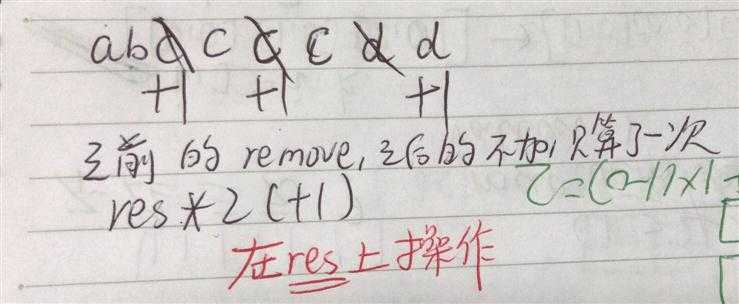 abc c c c d d
+1 +1 +1
之前的remove,之后的不加,只算了一次
res * 2 (+1)
在res上操作